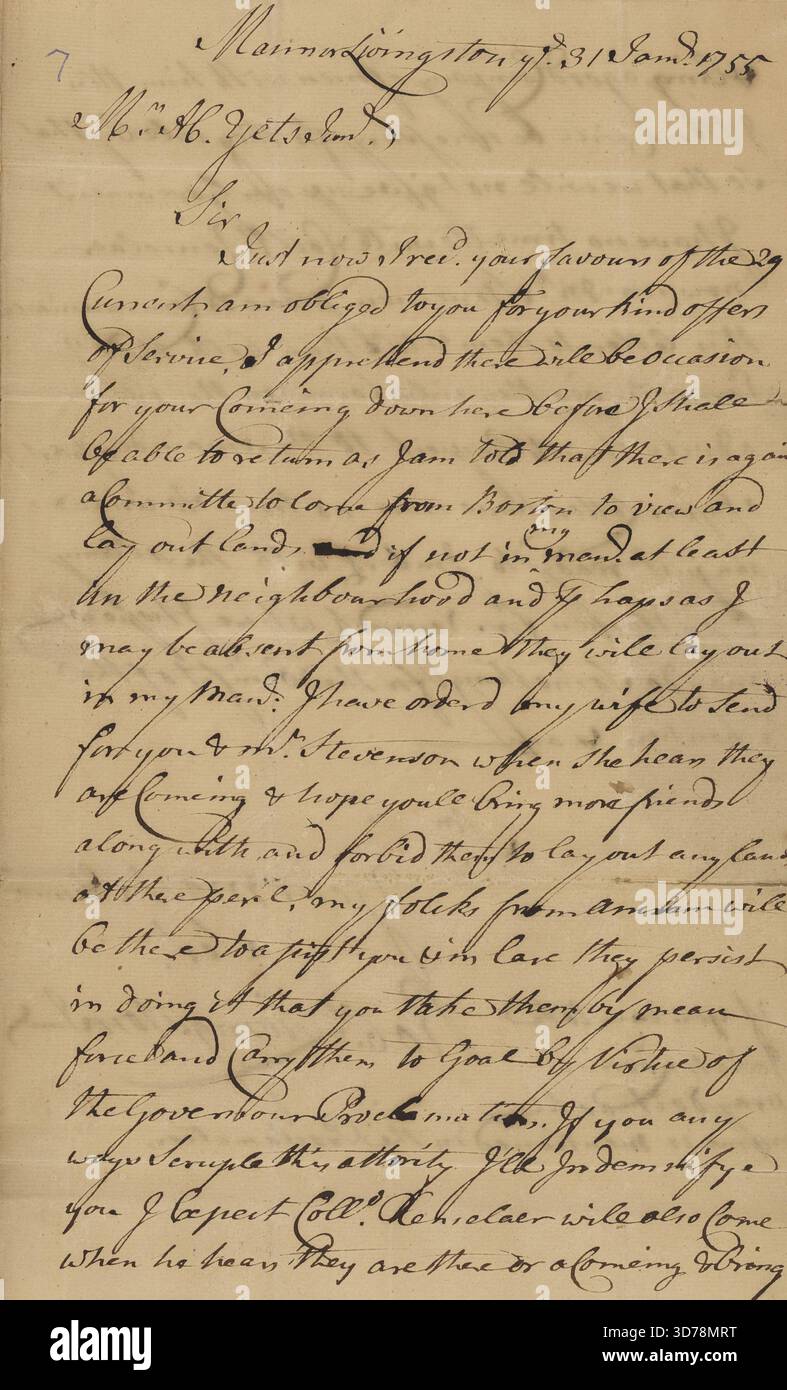 7
Mannor Livingston ye. 31 Janr. 1755
Mr. Ab. Yets Junr.,
Sir
Just now I recd. your favours of the 29
Current, am obliged to you for your kind offers
of Service, I apprehend there will be occasion
for your Comeing down here before I shall
be able to return as I am told that there is again
a Committe to Come from Boston to view and
lay out lands if not in my man.r at least
in the neighbourhood and haps as I
may be absent from home they will lay out
in my Man.r I have orderd my wife to send
for you & mr. Stevenson when she hears they
are Comeing & hope youle bring more friends
along with and forbid them to lay out any land
at there peril, my folcks from will
be there to assist you & in Case they persist
in doing it that you take them by mean
force and Carry them to Goal by Virtue of
the Governour Proclamation. If you any
ways Scruple this attority I'le Indemnifye
you I Expect Collo. Renselaer will also Come
when he hears they are there or a Comeing & bring
alamy
Image ID: 3D78MRT
www.alamy.com